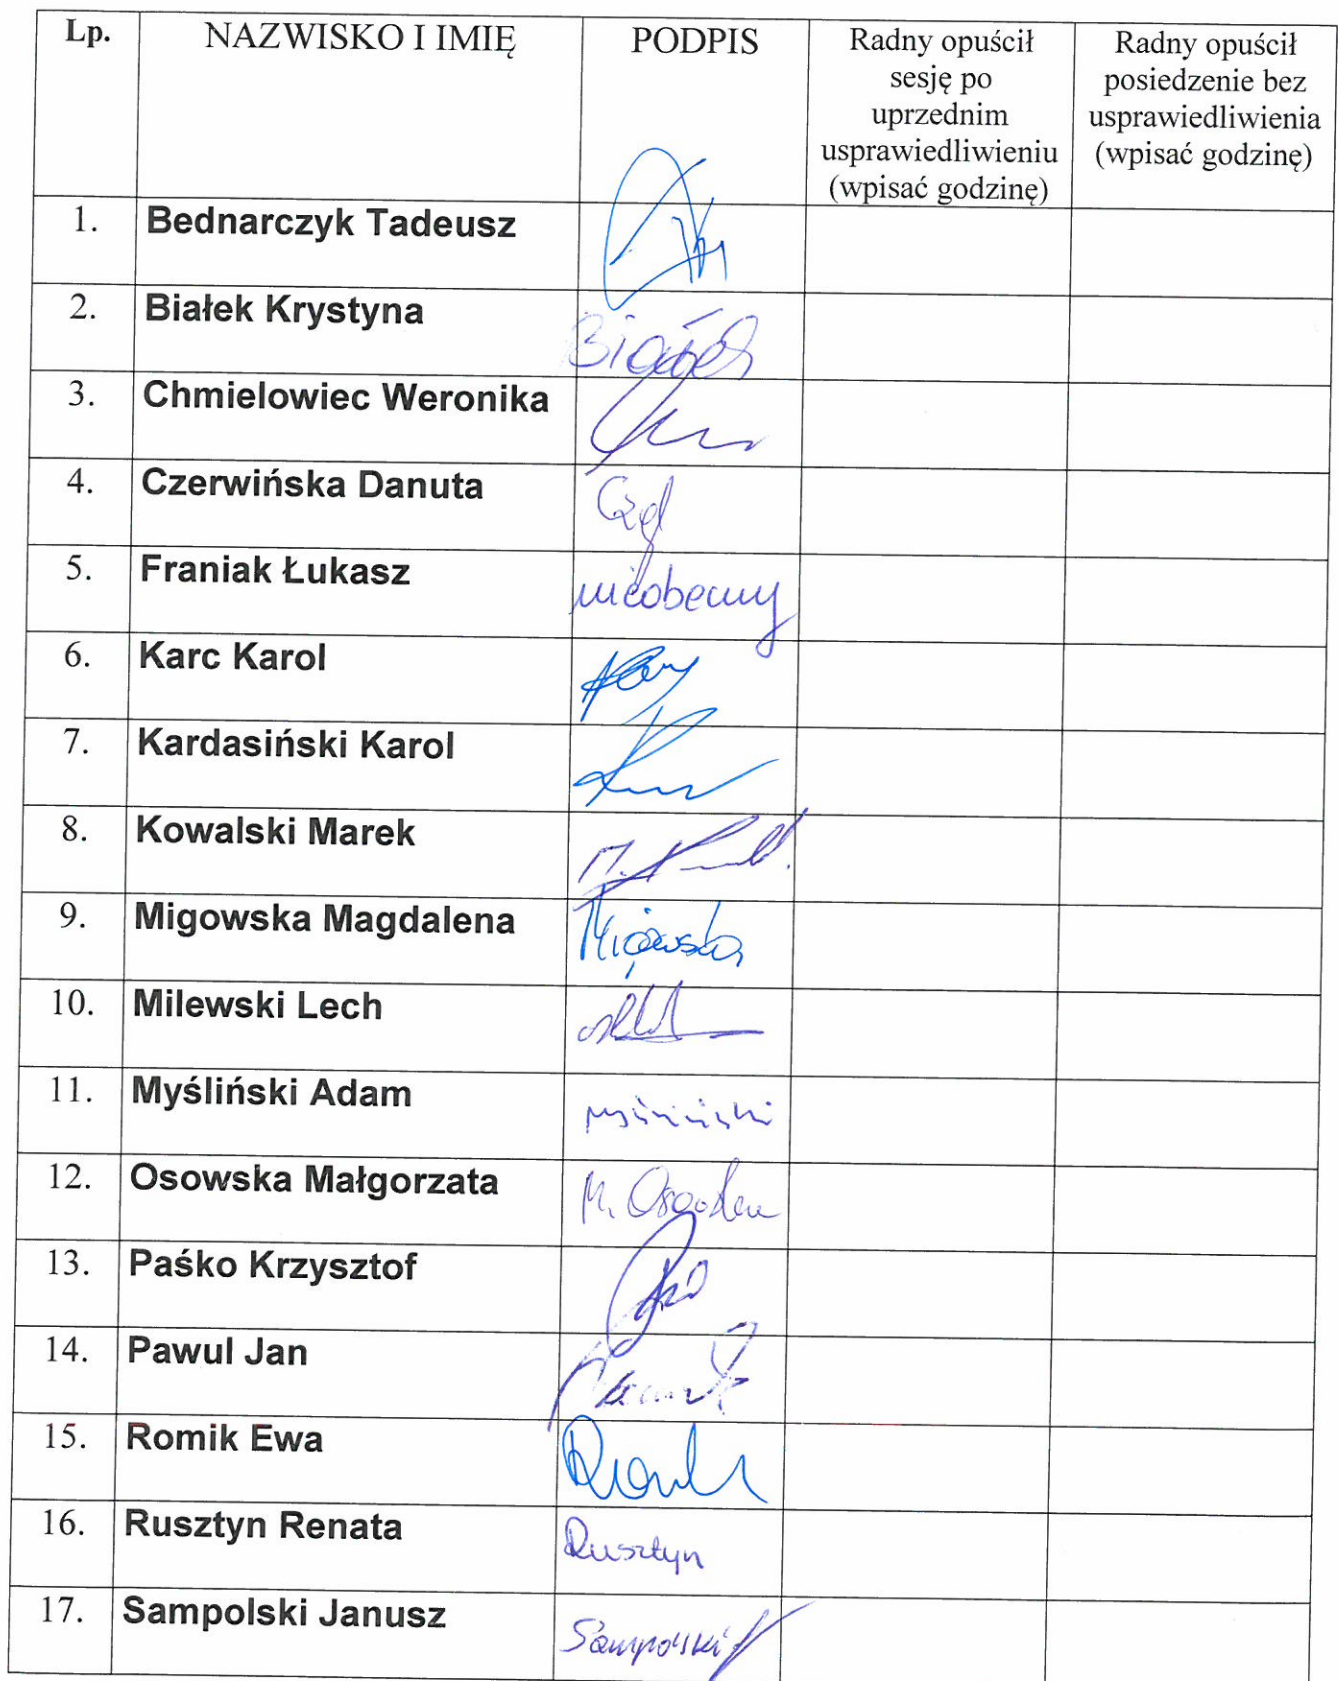 Lp. NAZWISKO I IMIĘ PODPIS Radny opuścił sesję po uprzednim usprawiedliwieniu (wpisać godzinę) Radny opuścił posiedzenie bez usprawiedliwienia (wpisać godzinę)
1. Bednarczyk Tadeusz
2. Białek Krystyna Białek
3. Chmielowiec Weronika
4. Czerwińska Danuta
5. Franiak Łukasz nieobecny
6. Karc Karol
7. Kardasiński Karol
8. Kowalski Marek
9. Migowska Magdalena Migowska
10. Milewski Lech
11. Myśliński Adam Myśliński
12. Osowska Małgorzata M. Osowska
13. Paśko Krzysztof
14. Pawul Jan
15. Romik Ewa
16. Rusztyn Renata Rusztyn
17. Sampolski Janusz Sampolski